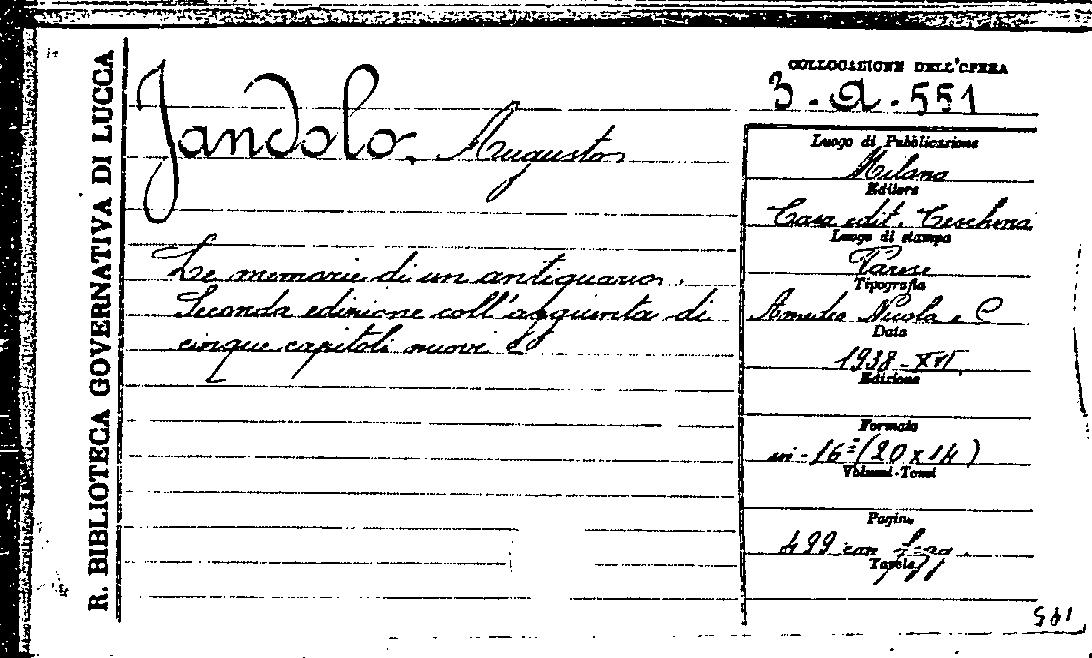 R. BIBLIOTECA GOVERNATIVA DI LUCCA
Jandolo, Augusto
Le memorie di un antiquario.
Seconda edizione coll'aggiunta di
cinque capitoli nuovi
COLLOCAZIONE DELL'OPERA
3. a. 551
Luogo di Pubblicazione
Milano
Editore
Casa edit. Ceschina
Luogo di stampa
Varese
Tipografia
Amedeo Nicola e C
Data
1938-XVI
Edizione
Formato
in-16° (20x14)
Volumi-Tomi
Pagine
499 con
Tavole